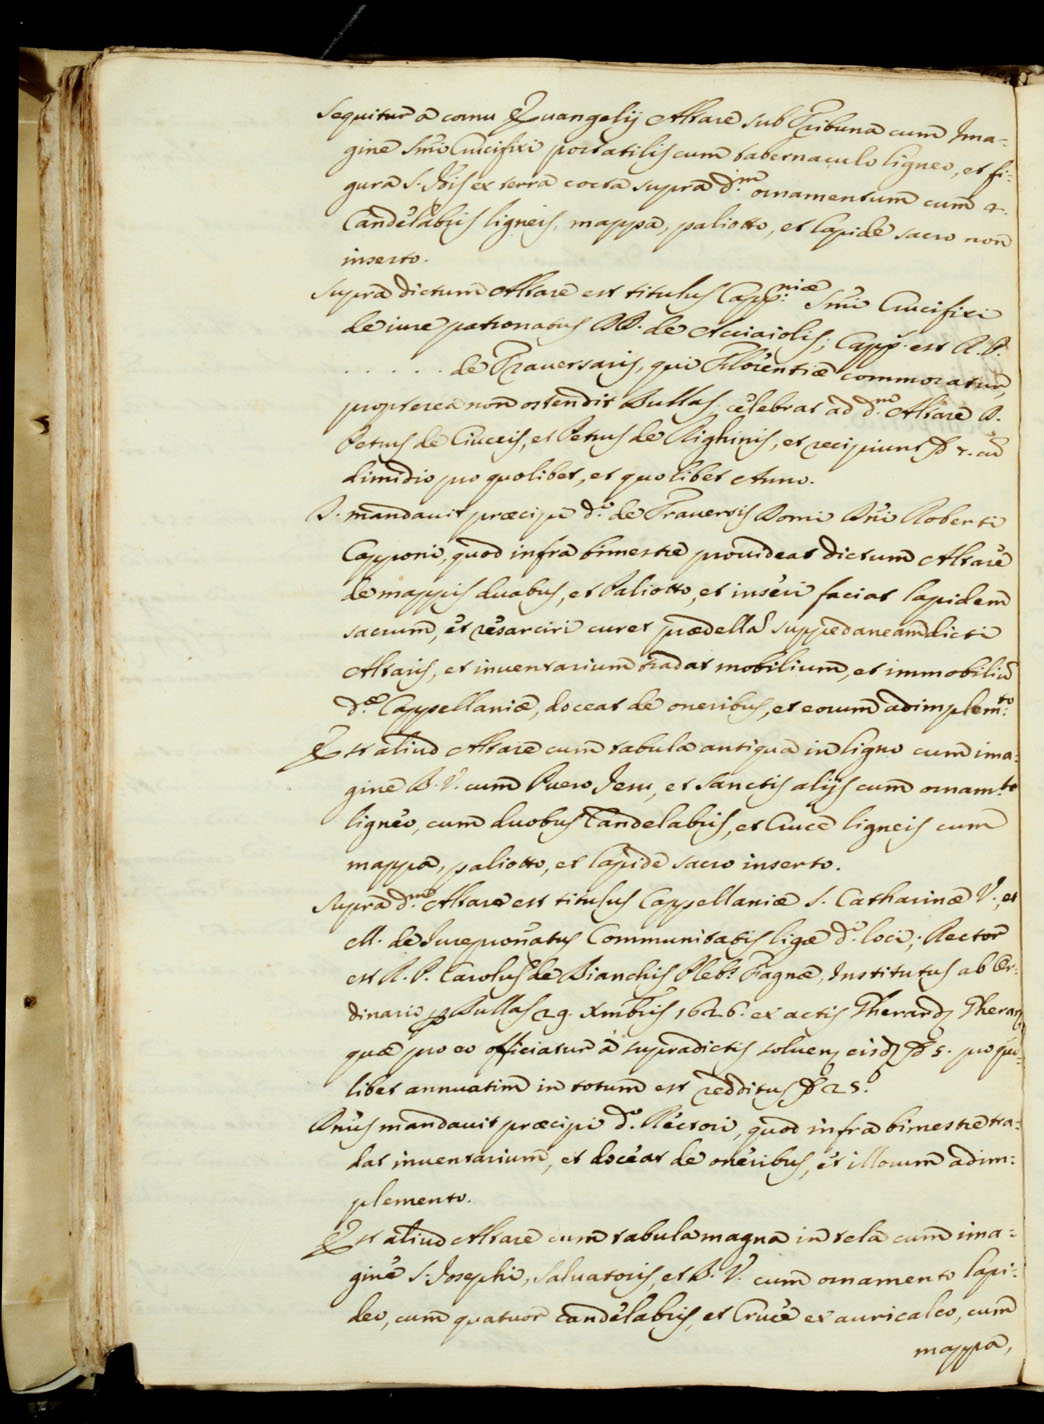 Sequitur a cornu Evangelij Altare sub Tribuna cum Ima-
gine Smi Crucifixi portatilis cum tabernaculo ligneo, et fi-
gura S. Jois ex terra cocta supra d.m ornamentum cum 4.
Candelabris ligneis, mappa, paliotto, et lapide sacro non
inserto.
Supra dictum Altare est titulus Capp.niæ Smi Crucifixi
de iure patronatus DD. de Acciaiolis; Capp. est R. P.
. . . . . . de Traversaris, qui Florentiæ commoratur,
propterea non ostendit Bullas, celebrat ad d.m Altare D.
Petrus de Cruceis, et Petrus de Righinis, et recipiunt
dimidio pro quolibet, et quolibet Anno.
D. mandavit præcipi d.o de Traversis Domi Dni Roberti
Capponi, quod infra bimestre provideat dictum Altare
de mappis duabus, et Paliotto, et inseri faciat lapidem
sacrum, et resarciri curet prædella suppedaneam dicti
Altaris, et inventarium tradat mobilium, et immobiliu
d.æ Cappellaniæ, doceat de oneribus, et eorum adimplem.to
Est aliud Altare cum tabula antiqua in ligno cum ima-
gine B. V. cum Puero Jesu, et Sanctis alijs cum ornam.to
ligneo, cum duobus Candelabris, et Cruce ligneis cum
mappa, paliotto, et lapide sacro inserto.
Supra d.m Altare est titulus Cappellaniæ S. Catharinæ V., et
M. de Jurepronatus Communitatis ligæ d.i loci; Rector
est R. P. Carolus de Bianchis Pleb.s Fagnæ, Institutus ab Or-
dinario Bullas 29. Xmbris 1626. ex actis Gherard
quæ pro eo officiatur a supradictis 5. pro quo-
libet annuatim in totum est redditus 25.
Dnus mandavit præcipi d.o Rectori, quod infra bimestre tra-
dat inventarium, et doceat de oneribus, et illorum adim-
plemento.
Est aliud Altare cum tabula magna in tela cum ima-
gine S. Josephi, Salvatoris, et B. V. cum ornamento lapi-
deo, cum quatuor candelabris, et Cruce ex auricalco, cum
mappa,